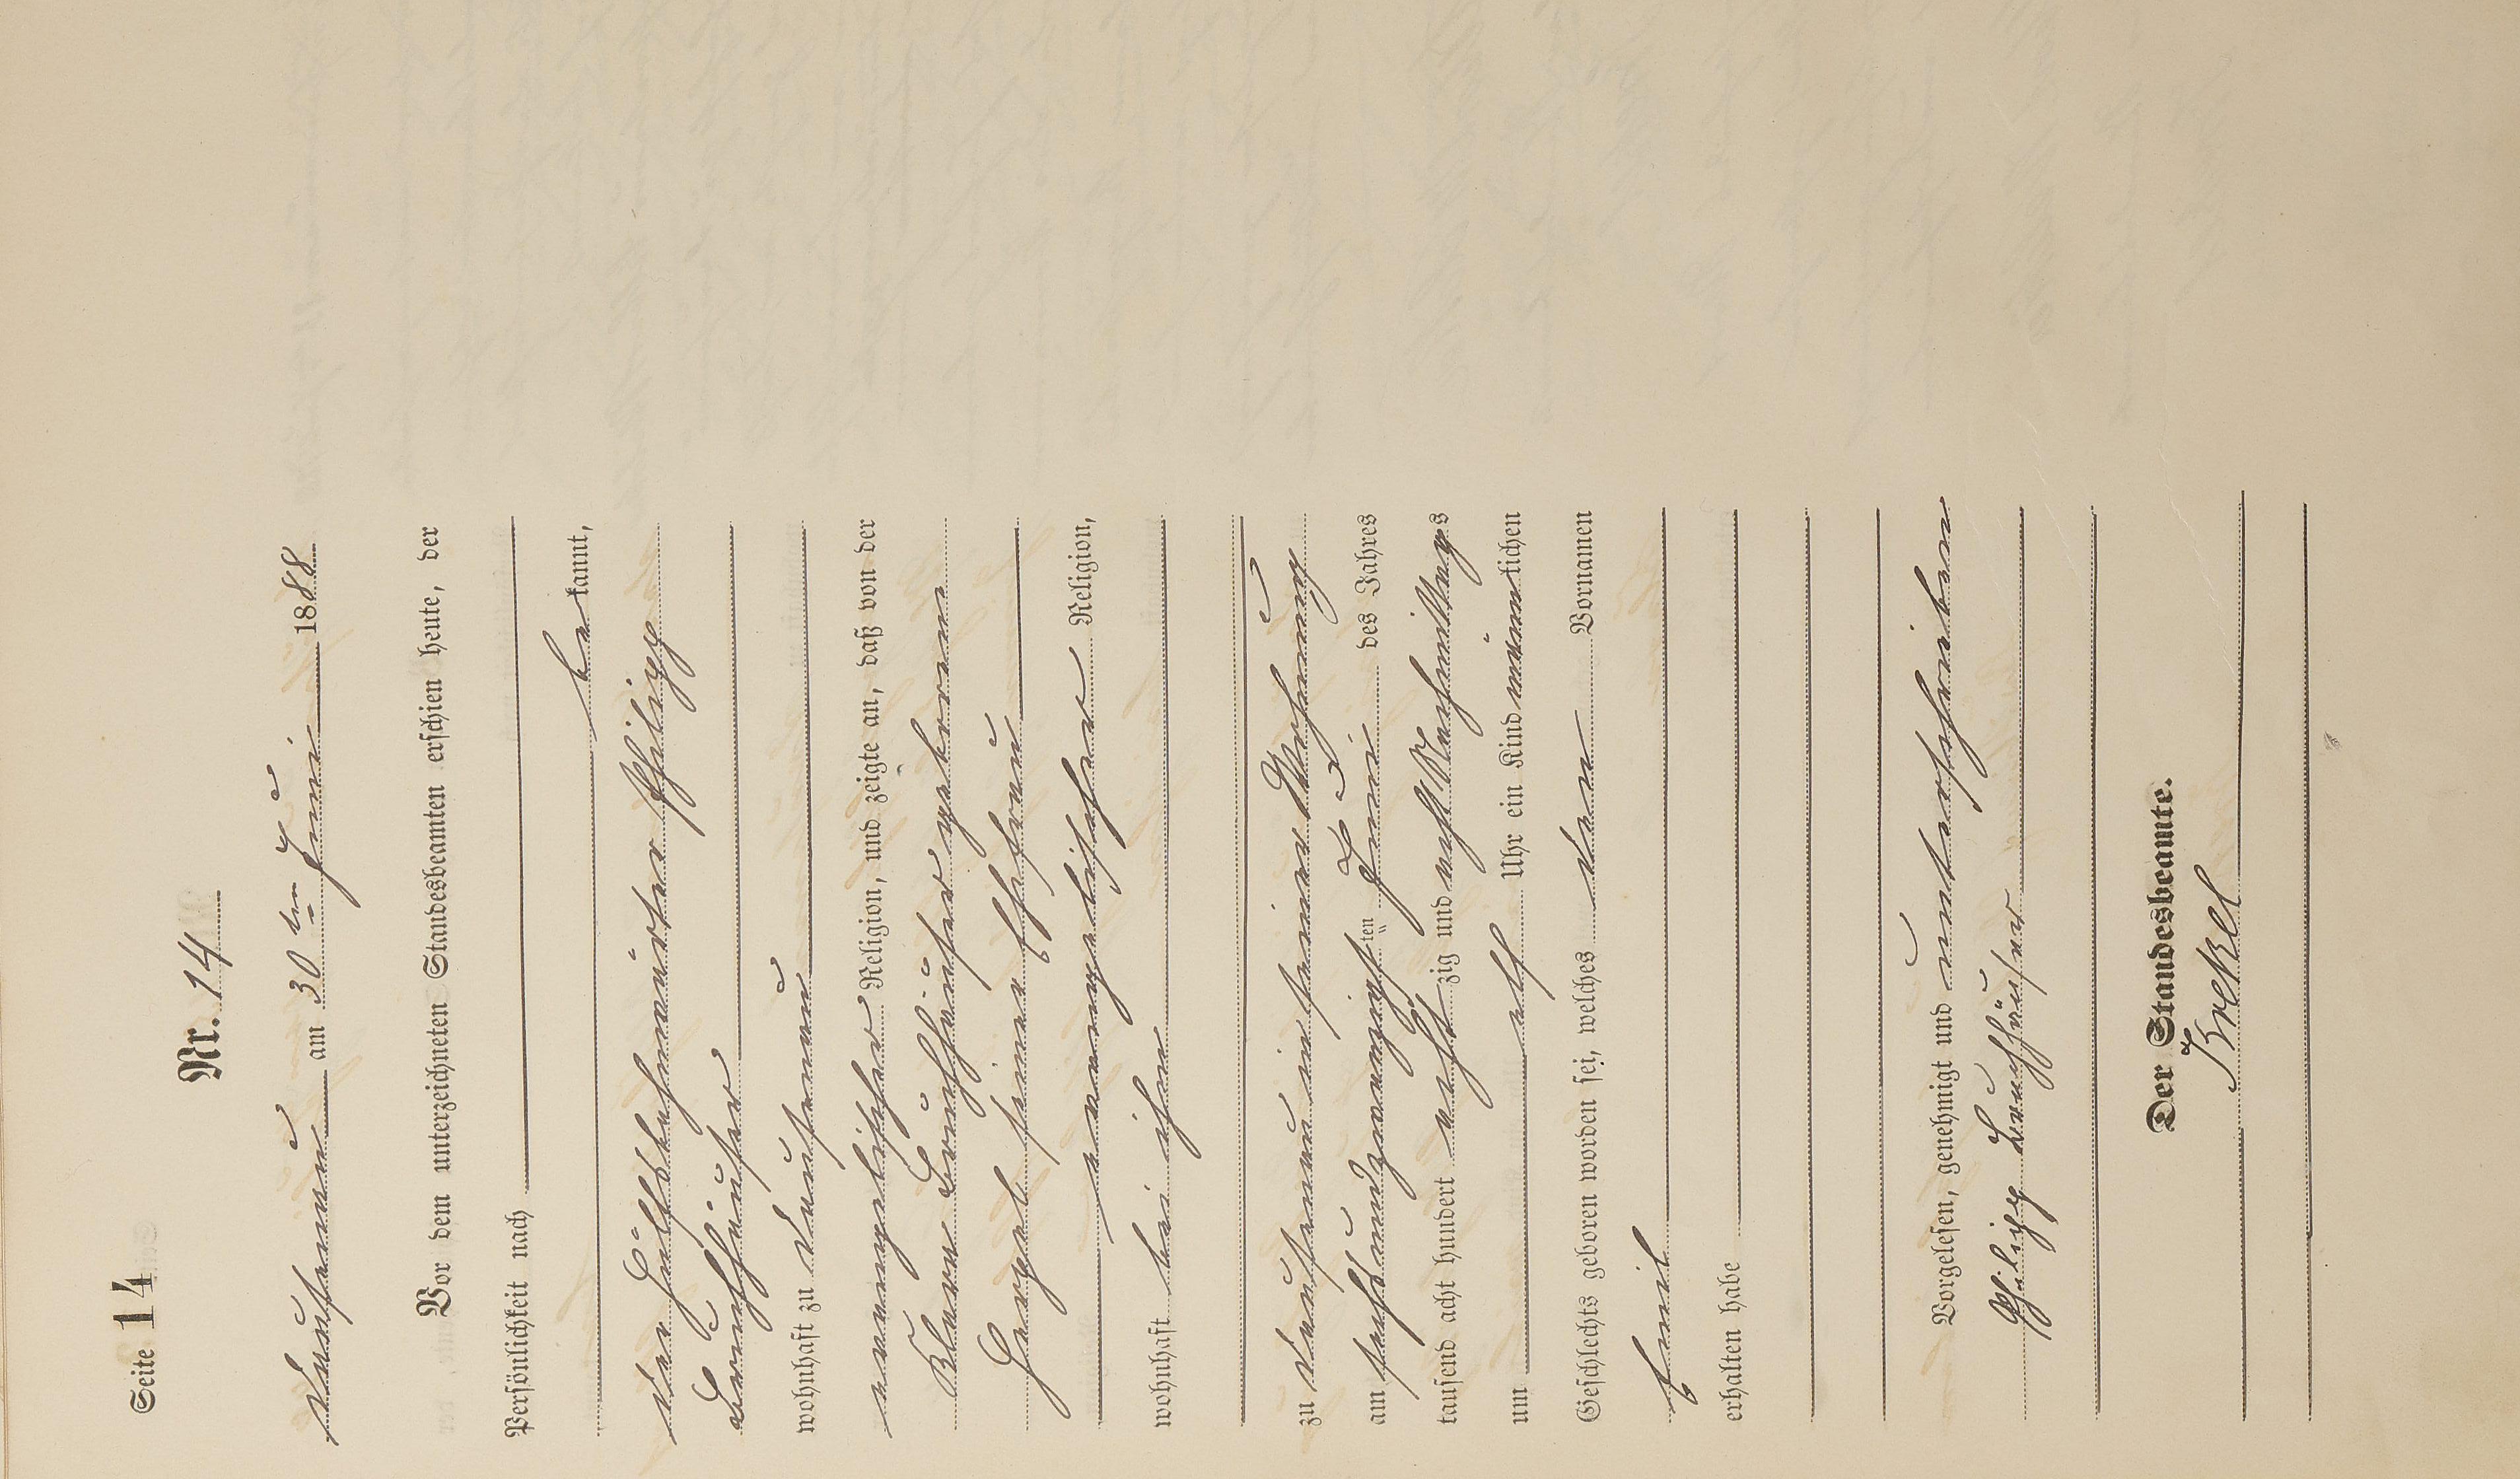 Seite 14
Nr. 14
Dausenau am 30ten Juni 1888
Vor dem unterzeichneten Standesbeamten erschien heute, der
Persönlichkeit nach
be kannt,
der Hülfsbahnwärter Philipp
Bruchhäuser
wohnhaft zu Dausenau
evangelischer Religion, und zeigte an, daß von der
Klara Bruchhäuser geborenen
seine Ehefrau
evangelischer Religion,
wohnhaft bei ihm
zu Dausenau in seiner Wohnung
am sechsundzwanzigsten Juni des Jahres
tausend acht hundert acht zig und acht Nachmittags
um elf Uhr ein Kind männ lichen
Geschlechts geboren worden sei, welches den Vornamen
Emil
erhalten habe
Vorgelesen, genehmigt und unterschrieben
Philipp Bruchhäuser
Der Standesbeamte.